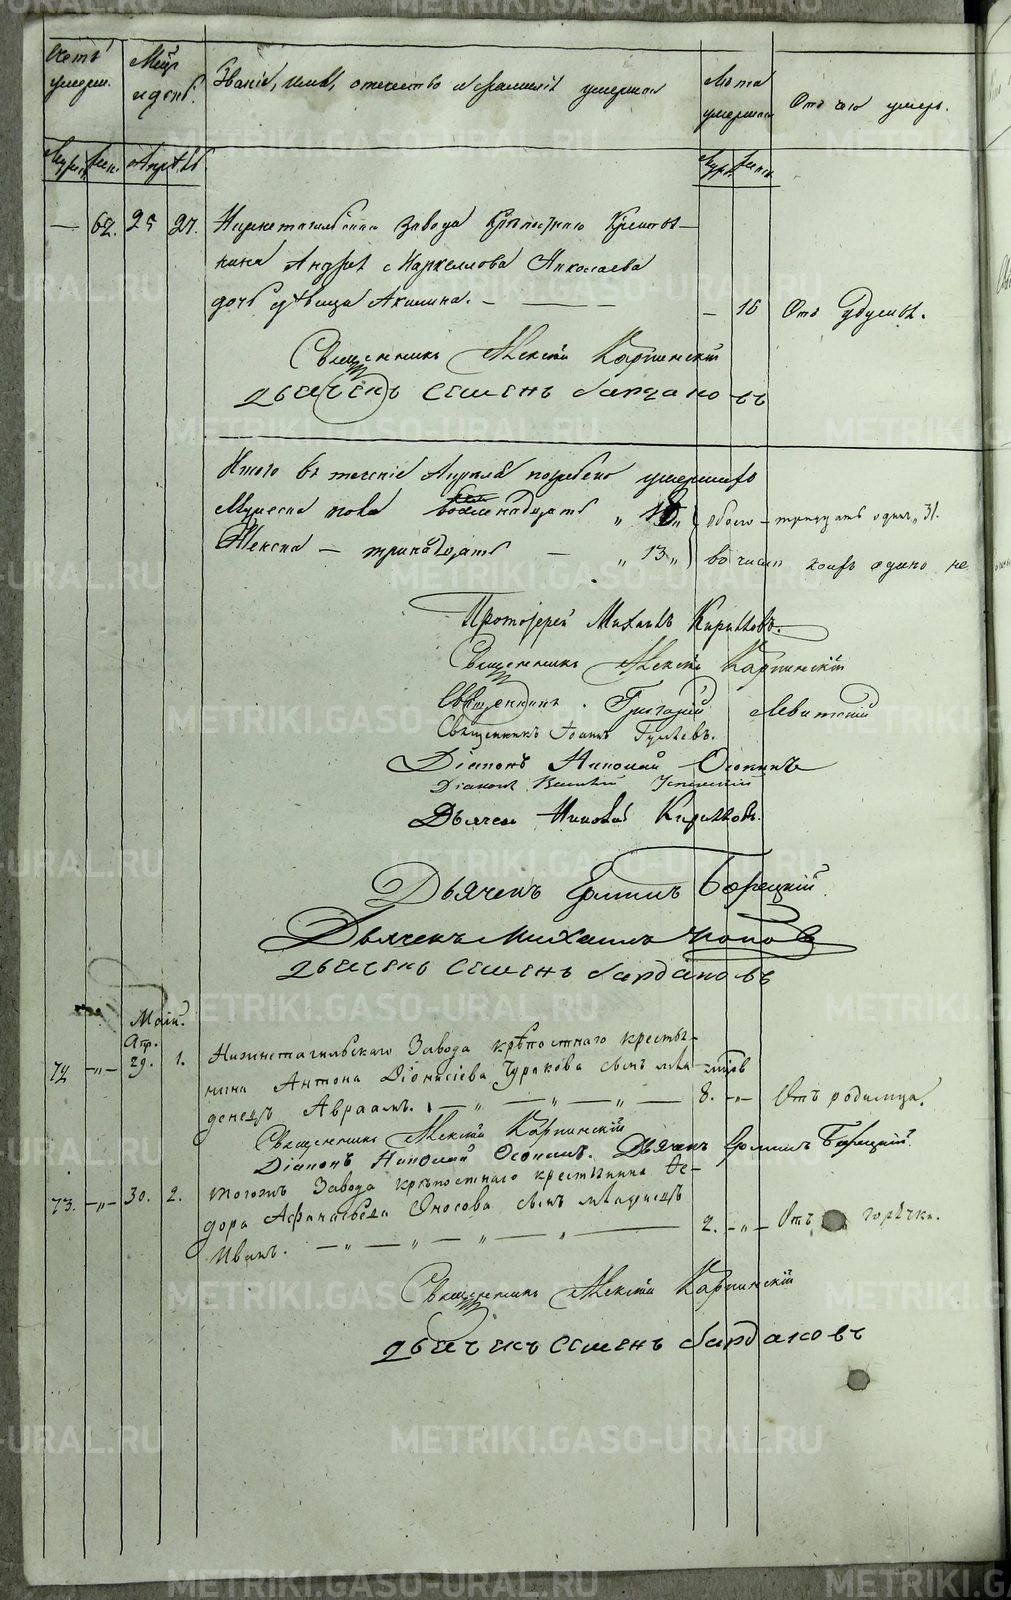 Счетъ умерш.
Мѣс. и день.
Званіе, имя, отчество и фамилія умершаго
Лѣта умершаго
Отъ чего умеръ.
Муж. Жен. Апрѣль. Муж. Жен.
— 62. 25 27. Нижнетагильскаго завода крѣпостнаго крестья-
нина Андрея Маркеллова Николаева
дочь дѣвица Акилина. — — 16 Отъ удушья.
Священникъ Алексій Карпинскій
дьячекъ Семенъ Бардаковъ
Итого въ теченіе Апрѣля погребено умершихъ
Мужеска пола восемнадцать „ 18 „ обоего — тридцать одинъ „ 31.
Женска — тринадцать — „ 13 „ въ числѣ коихъ одино не
Протоіерей Михаилъ Кирилловъ.
Священникъ Алексій Карпинскій
Священникъ Григорій Левитскій
Священникъ Іоаннъ
Діаконъ Николай Осокинъ
Діаконъ Василій Успенскій
Дьячекъ Николай Кирилловъ.
Дьячекъ Ермилъ Борецкій.
Дьячекъ Михаилъ Поповъ
дьячекъ Семенъ Бардаковъ
Май.
Апр.
72 —„— 29. 1. Нижнетагильскаго Завода крѣпостнаго крестья-
нина Антона Діонисіева Чуракова сынъ мла-
денецъ Авраамъ. — „ — „ — „ — 8. —„— Отъ родимца.
Священникъ Алексій Карпинскій
Діаконъ Николай Осокинъ. Дьячекъ Ермилъ Борецкій.
73. —„— 30. 2. Тогожъ Завода крѣпостнаго крестьянина Ѳе-
дора Афанасьева Оносова сынъ младенецъ
Иванъ. — „ — „ — „ — „ — 2. —„— Отъ горячки.
Священникъ Алексій Карпинскій
дьячекъ Семенъ Бардаковъ
METRIKI.GASO-URAL.RU